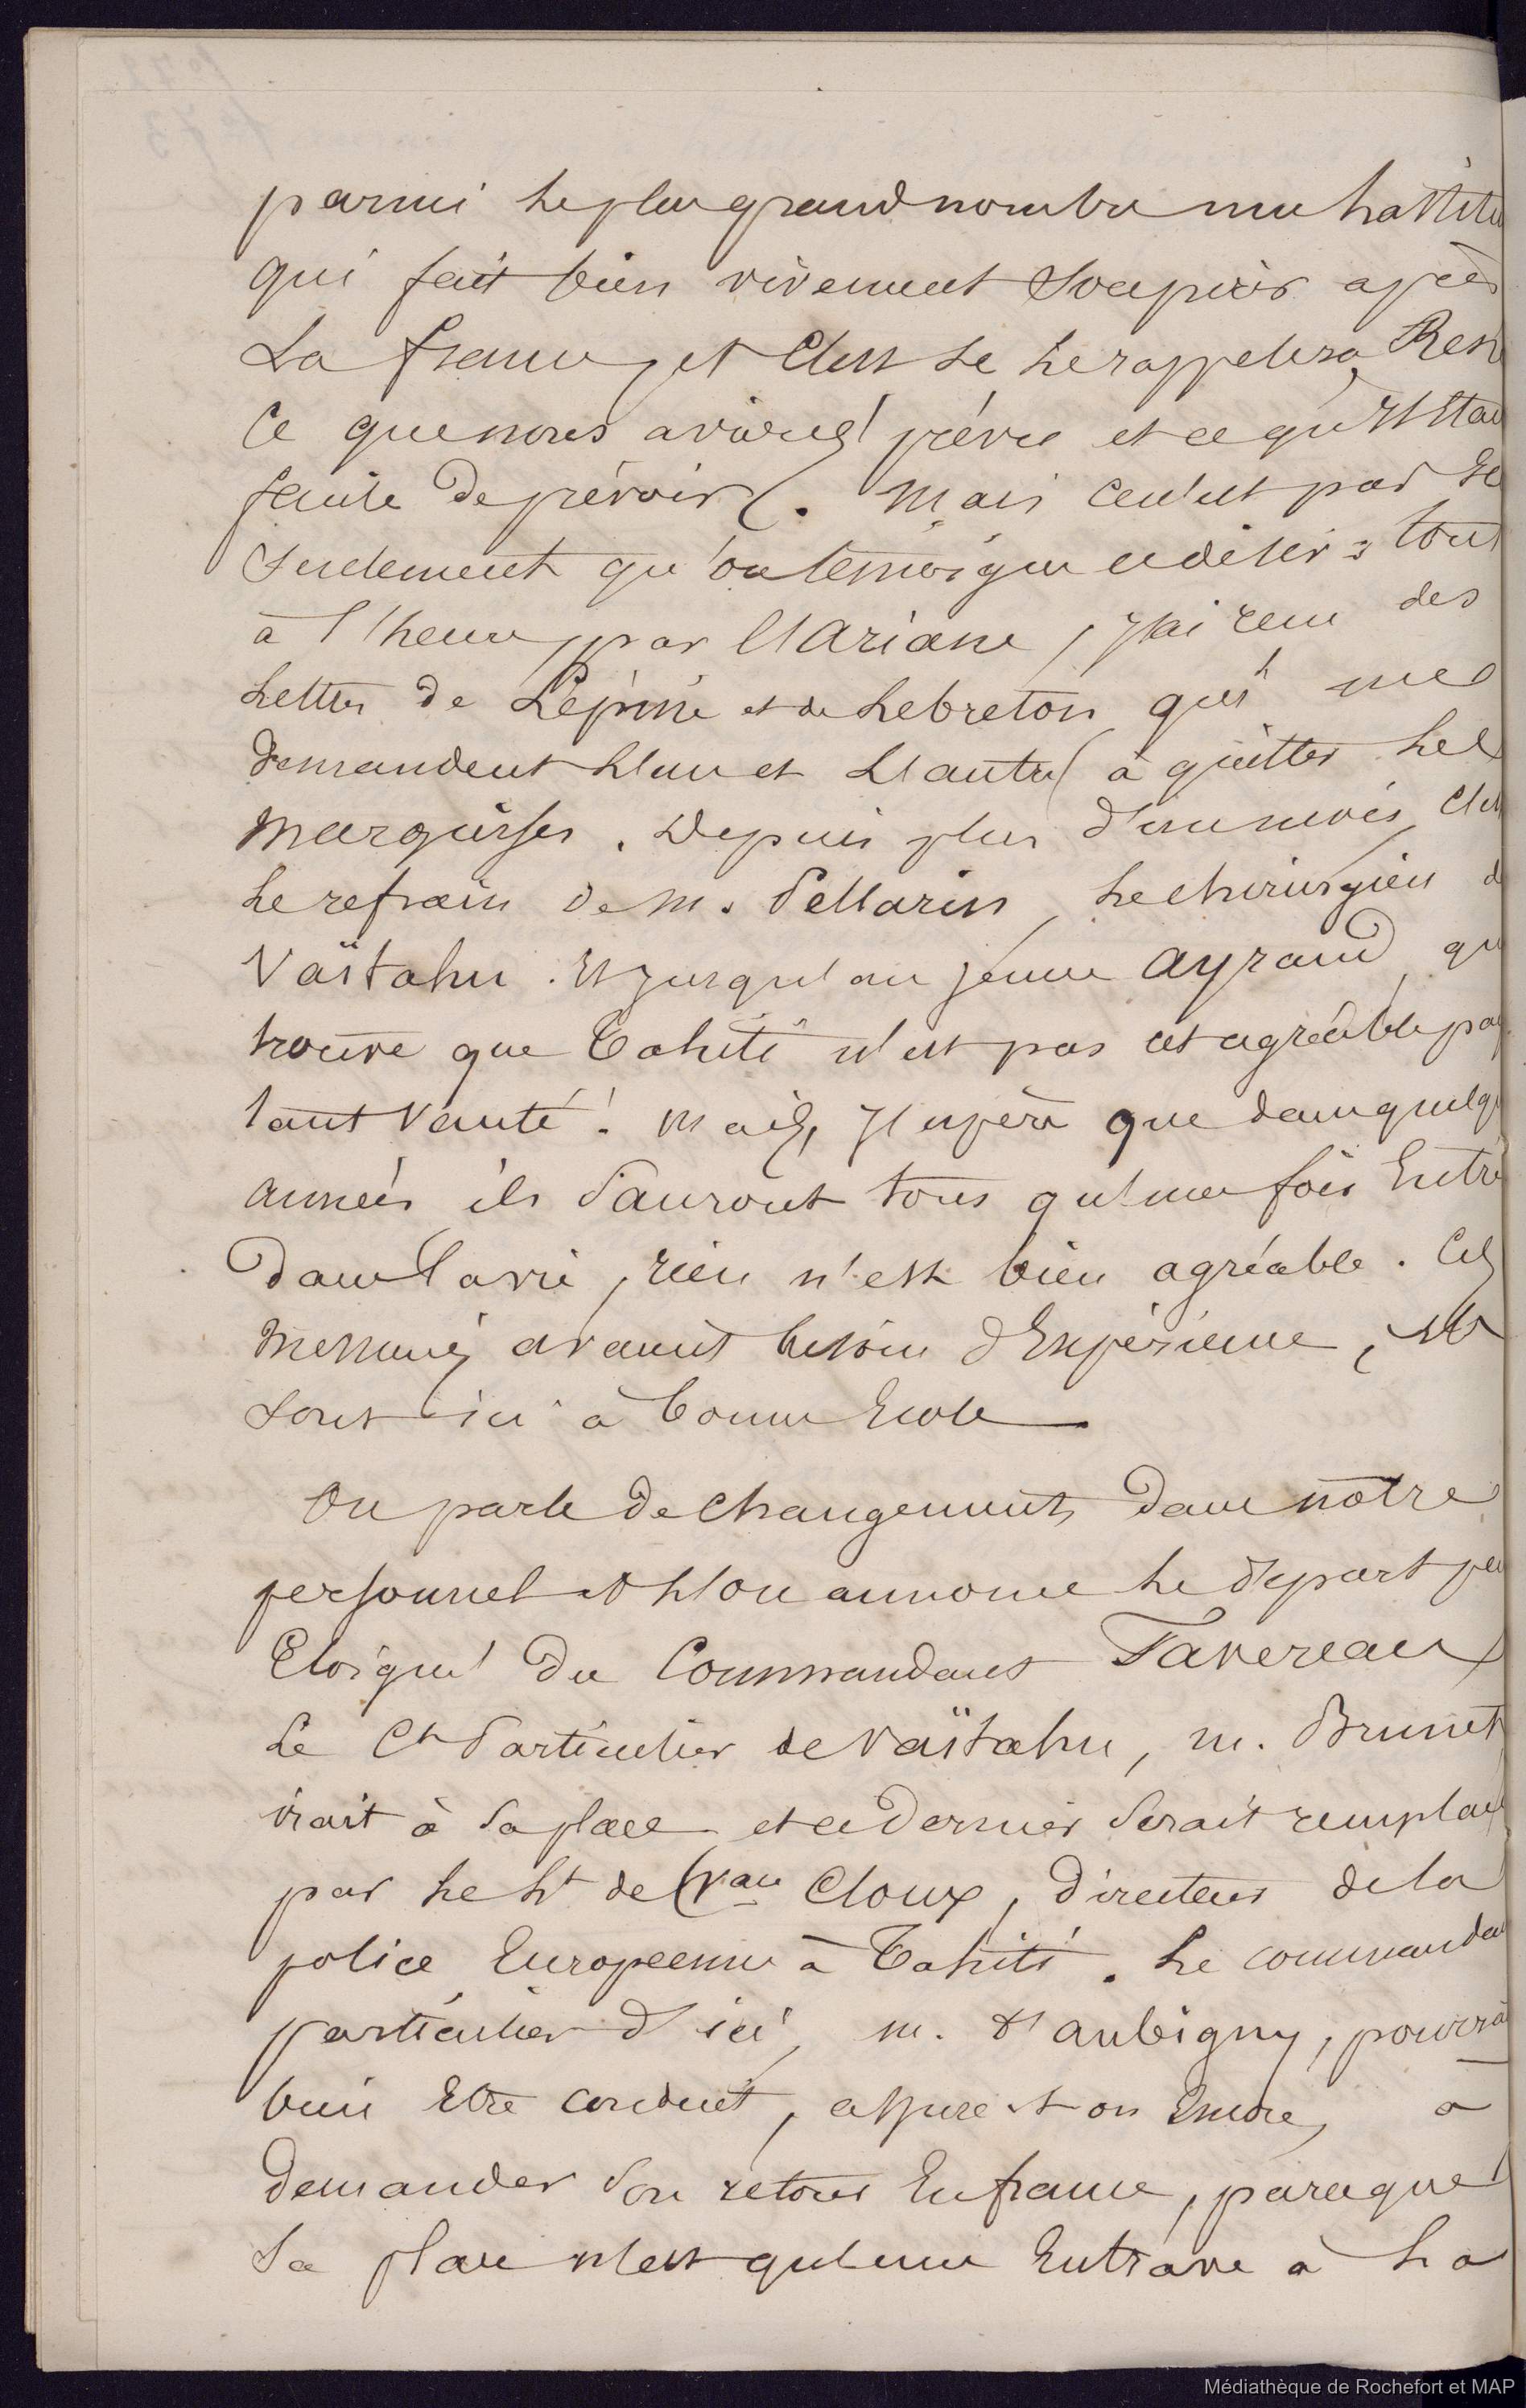 parmi le plus grand nombre une
qui fait bien vivement soupirer après
La france, et C'est se le rappeler.
Ce que nous avions prévu et ce qu'il était
facile De prévoir. Mais ce n'est pas
seulement qu'on témoigne ce désir : tout
à l'heure, par l'Ariane, j'ai reçu des
Lettres de Lépine et de Lebreton qui me
Demandent L'un et L'autre à quitter les
Marquises. Depuis plus d'un mois, c'est
Le refrain de M. Pellarin, Le chirurgien de
Vaïtahu. Et jusqu'au jeune Ayraud, qui
trouve que Tahiti n'est pas cet agréable pays
tant vanté ! Mais, J'espère que dans quelques
années ils Sauront tous qu'une fois Entré
Dans la vie, rien n'est bien agréable. Ces
Messieurs avaient besoin d'Expérience, ils
sont ici à bonne Ecole
On parle de Changements Dans notre
personnel et L'on annonce le départ peu
Eloigné Du Commandant Favereau
Le Ct Particulier de Vaïtahu, M. Brunet
irait à Sa place et ce Dernier Serait remplacé
par le Lt de Vau Cloux, Directeur de la
police Européenne à Tahiti. Le commandant
particulier d'ici, M. d'aubigny, pourrait
bien Etre conduit, assure-t-on Encore, à
Demander Son retour En france, parceque
Sa place n'est qu'une Entrave à La
Médiathèque de Rochefort et MAP